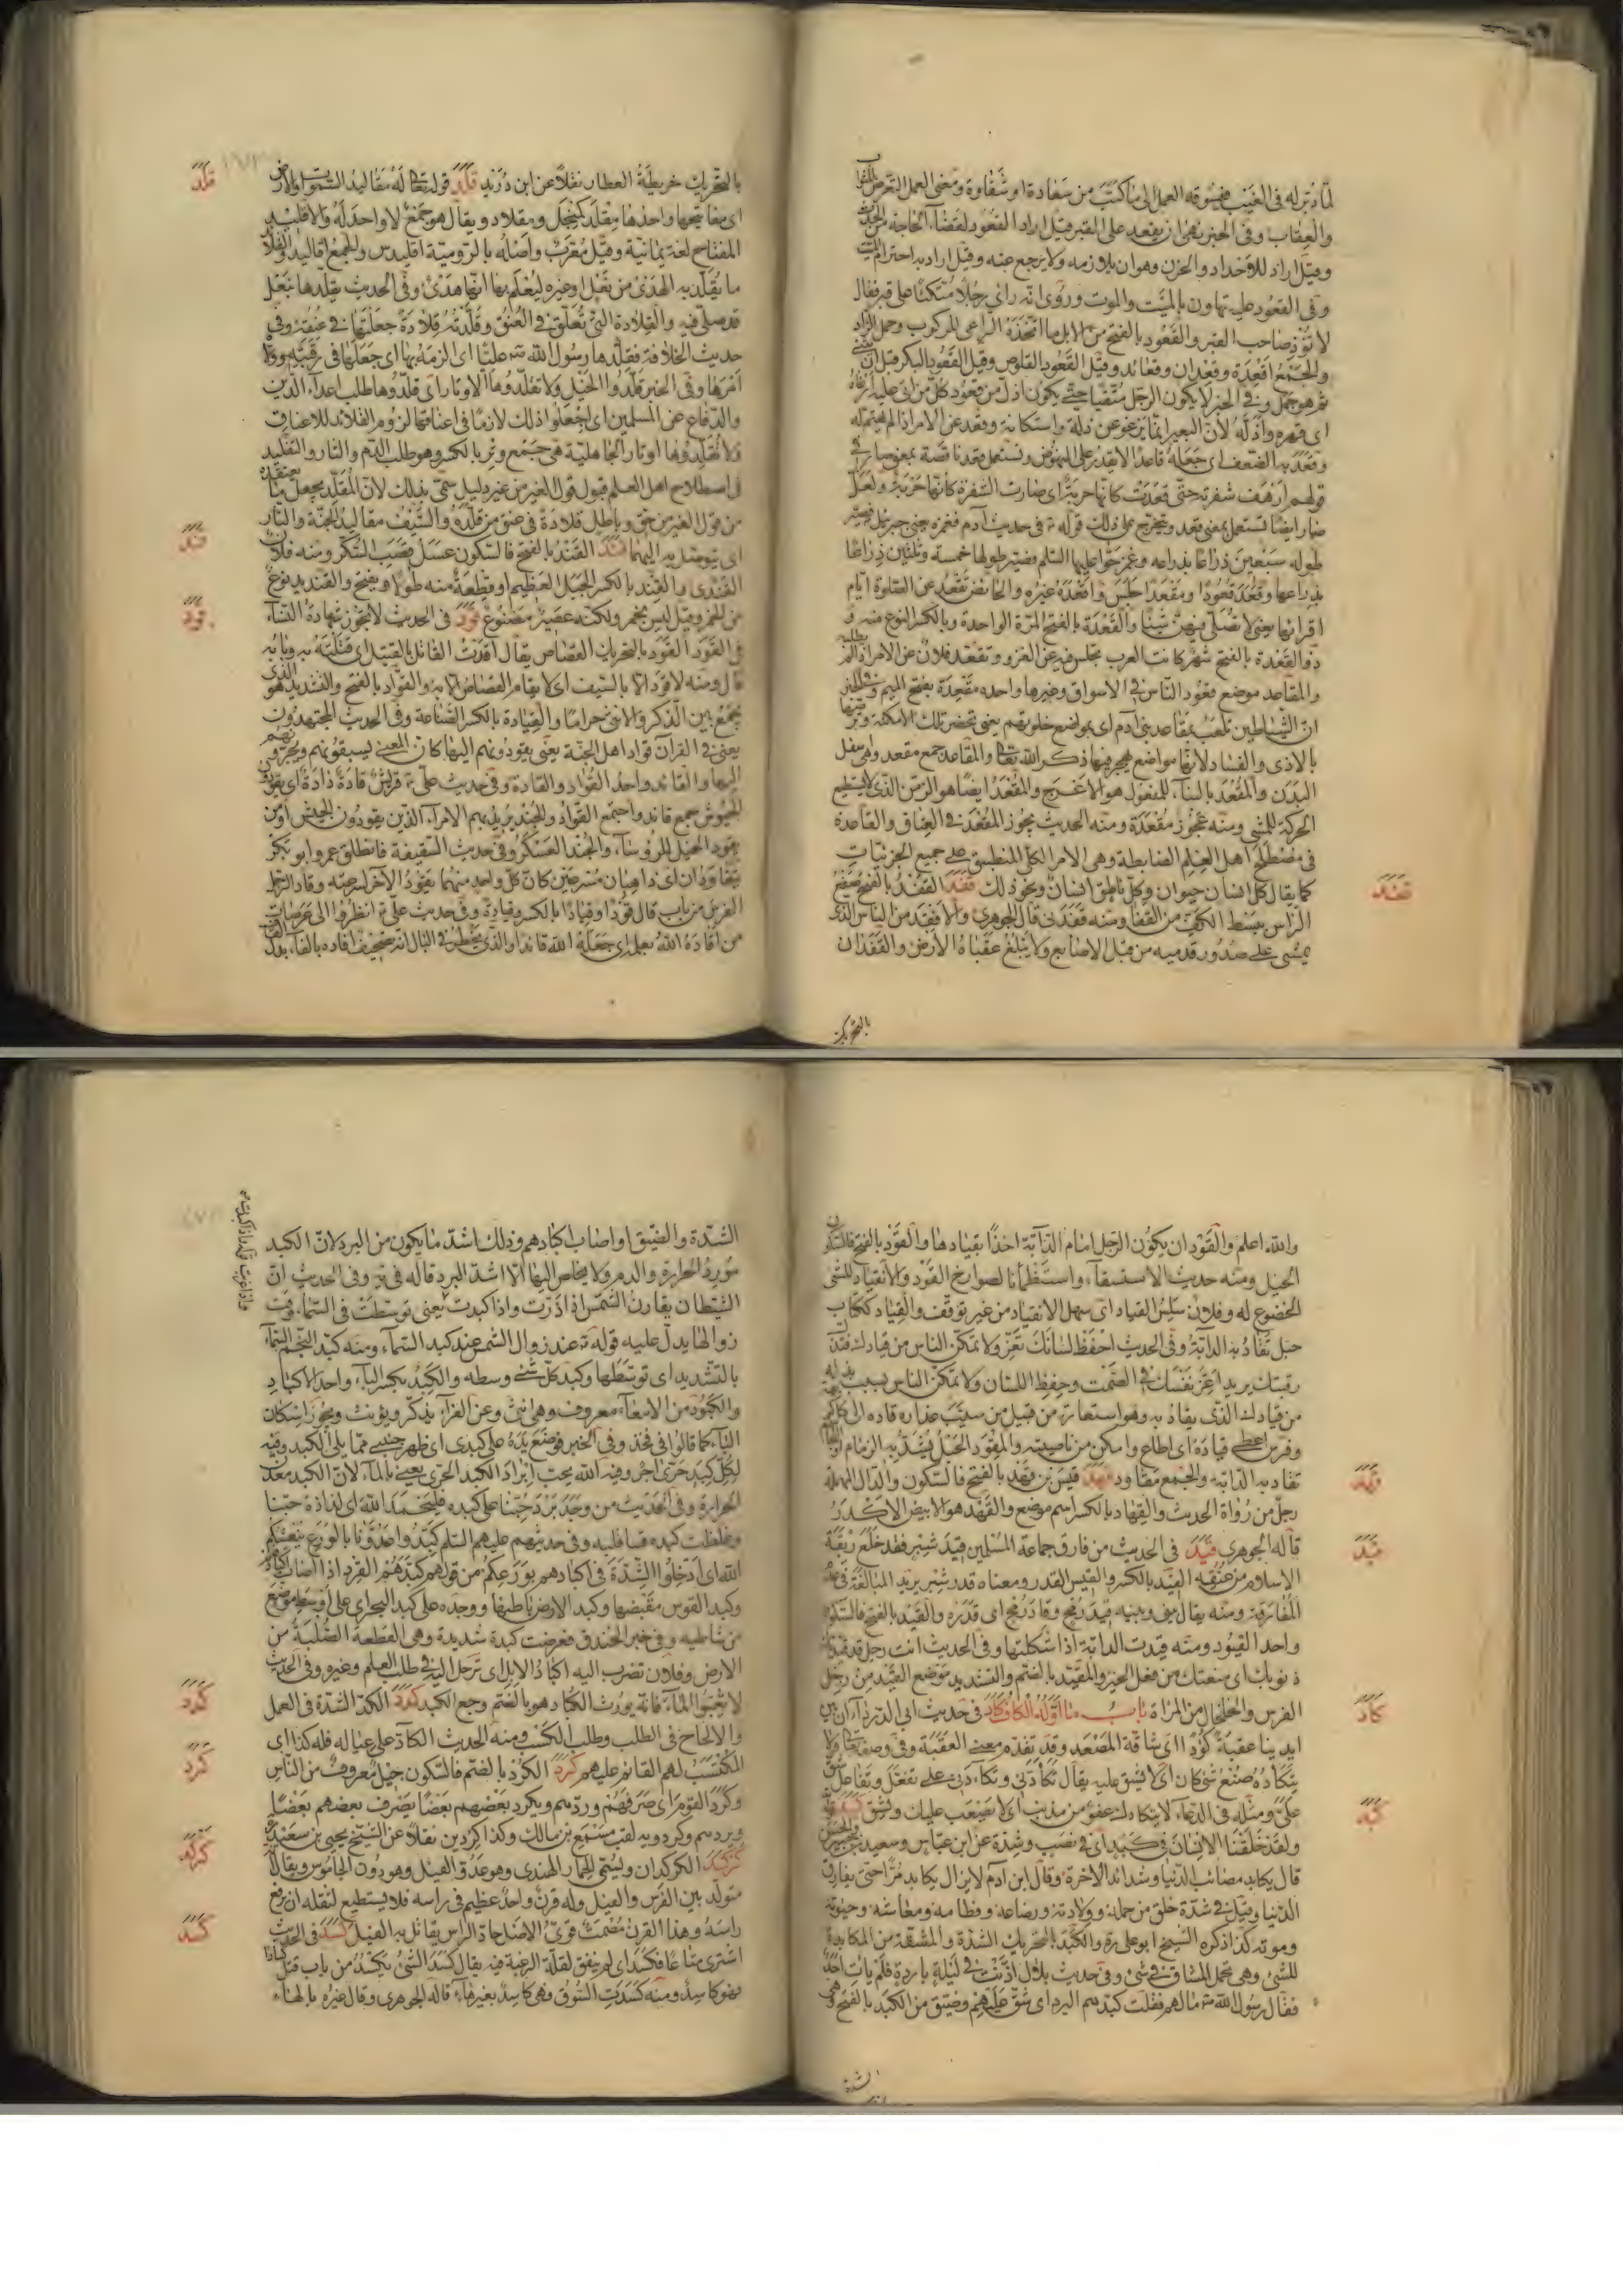 لما دبر له فى الغيب فيسوقه العمل الى ما كتب من سعادة او شقاوة ومعنى العمل التعرض للثواب
والعقاب وفى الخبر نهى ان يقعد على القبر قيل اراد القعود لقضاء الحاجة من الحدث
وقيل اراد للاحداد والحزن وهو ان يلازمه ولا يرجع عنه وقيل اراد به احترام الميت
وفى القعود عليه تهاون بالميت والموت وروى انه راى رجلا متكئا على قبر فقال
لا تؤذ صاحب القبر والقعود بالفتح من الابل ما اتخذه الراعى للركوب وحمل الزاد
والجمع اقعدة وقعدان وقعائد وقيل القعود القلوص وقيل القعود البكر قبل ان يثنى
ثم هو جمل وفى الخبر لا يكون الرجل متقيا حتى يكون اذل من قعود كل من اتى عليه ارغاه
اى قهره واذله لان البعير انما يرغو عن ذلة واستكانة وقعد عن الامر اذا لم يهتم له
وقعد به الضعف اى جعله قاعدا لا يقدر على النهوض وتستعمل قعد ناقصة بمعنى صار فى
قولهم ارهف شفرته حتى قعدت كانها حربة اى صارت الشفرة كانها حربة ولعل
صار ايضا تستعمل بمعنى قعد ويتخرج على ذلك قوله ع فى حديث آدم فغمزه يعنى جبرئيل فصير
طوله سبعين ذراعا بذراعه وغمز حوا عليها السلم فصير طولها خمسة وثلثين ذراعا
بذراعها وقعد قعودا ومقعدا جلس واقعده غيره والحائض تقعد عن الصلوة ايام
اقرائها يعنى لا تصلى فيهن شيئا والقعدة بالفتح المرة الواحدة وبالكسر النوع منه و
ذو القعدة بالفتح شهر كانت العرب تجلس فيه عن الغزو وتقعد فلان عن الامر اذا لم يطلبه
والمقاعد موضع قعود الناس فى الاسواق وغيرها واحده مقعدة بفتح الميم وفى الخبر
ان الشياطين تلعب بمقاعد بنى آدم اى بمواضع خلوتهم يعنى تحضر تلك الامكنة وترصدها
بالاذى والفساد لانها مواضع يهجر فيها ذكر الله تعالى والمقاعد جمع مقعد وهى سفل
البدن والمقعد بالبناء للمفعول هو الاعرج والمقعد ايضا هو الزمن الذى لا يستطيع
الحركة للمشى ومنه عجوز مقعدة ومنه الحديث يجوز المقعد فى العتاق والقاعدة
فى مصطلح اهل العلم الضابطة وهى الامر الكلى المنطبق على جميع الجزئيات
كما يقال كل انسان حيوان وكل ناطق انسان ونحو ذلك قفد القفد بالفتح صفع
الراس ببسط الكف من القفا ومنه قفدنى قال الجوهرى والاقفد من الناس الذى
يمشى على صدور قدميه من قبل الاصابع ولا يبلغ عقباه الارض والقفدان
قفد
بالتحريك
بالتحريك خريطة العطار نقلا عن ابن دريد قلد قوله تعالى له مقاليد السموات والارض
اى مفاتيحها واحدها مقلد كمنجل ومقلاد ويقال هو جمع لا واحد له والاقليد
المفتاح لغة يمانية وقيل معرب واصله بالرومية اقليدس والجمع اقاليد والقلائد
ما يقلد به الهدى من نعل او غيره ليعلم بها انها هدى وفى الحديث يقلدها بنعل
قد صلى فيه والقلادة التى تعلق فى العنق وقلدته قلادة جعلتها فى عنقه وفى
حديث الخلافة فقلدها رسول الله ص عليا اى الزمه بها اى جعلها فى رقبته وولاه
امرها وفى الخبر قلدوا الخيل ولا تقلدوها الاوتار اى قلدوها طلب اعداء الدين
والدفاع عن المسلمين اى اجعلوا ذلك لازما فى اعناقها لزوم القلائد للاعناق
ولا تقلدوها اوتار الجاهلية هى جمع وتر بالكسر وهو طلب الدم والثار والتقليد
فى اصطلاح اهل العلم قبول قول الغير من غير دليل سمى بذلك لان المقلد يجعل ما يعتقده
من قول الغير من حق وباطل قلادة فى عنق من قلده والسيف مقاليد الجنة والنار
اى يتوصل به اليهما قند القند بالفتح فالسكون عسل قصب السكر ومنه فلان
القندى والقند بالكسر الجبل العظيم او قطعة منه طولا ويفتح والقنديد نوع
من الخمر وقيل ليس بخمر ولكنه عصير مصنوع قود فى الحديث لا تجوز شهادة النساء
فى القود القود بالتحريك القصاص يقال اقدت القاتل بالقتيل اى قتلته به وبابه
قال ومنه لا قود الا بالسيف اى لا يقام القصاص الا به والقواد بالفتح والتشديد هو الذى
يجمع بين الذكر والانثى حراما والقيادة بالكسر الصناعة وفى الحديث المجتهدون
يعنى فى القرآن قواد اهل الجنة يعنى يقودونهم اليها كان المعنى يسبقونهم ويجرونهم
اليها والقائد واحد القواد والقادة وفى حديث على ع قريش قادة ذادة اى يقودون
الجيوش جمع قائد واجتمع القواد والجند يريد بهم الامراء الذين يقودون الجيش او من
يقود الخيل للرؤساء والجند العسكر وفى حديث السقيفة فانطلق عمر وابو بكر
يتقاودان اى ذاهبان مسرعين كان كل واحد منهما يقود الآخر لسرعته وقاد الرجل
الفرس من باب قال قودا وقيادا بالكسر وقيادة وفى حديث على ع انظروا الى عرصات
من اقاده الله بعلم اى جعله الله قائدا والذى يخطر فى البال انه تصحيف افاده بالفاء بدل القاف
قلد
قند
قود
والله اعلم والقود ان يكون الرجل امام الدابة اخذا بقيادها والقود بالفتح فالسكون
الخيل ومنه حديث الاستسقاء واستظمأنا لصوارخ القود والانقياد للشى
الخضوع له وفلان سلس القياد اى سهل الانقياد من غير توقف والقياد ككتاب
حبل تقاد به الدابة وفى الحديث احفظ لسانك تعز ولا تمكن الناس من قيادك فتذل
رقبتك يريد اعز نفسك فى الصمت وحفظ اللسان ولا تمكن الناس بسبب بذله
من قيادك الذى يقاد به وهو استعارة من قبيل من سيب عذاره قاده الى كل كريهة
وفرس اعطى قياده اى اطاع وامكن من ناصيته والمقود الحبل يشد به الزمام او اللجام
تقاد به الدابة والجمع مقاود قهد قيس بن قهد بالفتح فالسكون والدال المهملة
رجل من رواة الحديث والقهاد بالكسر اسم موضع والقهد هو الابيض الاكدر
قاله الجوهرى قيد فى الحديث من فارق جماعة المسلمين قيد شبر فقد خلع ربقة
الاسلام من عنقه القيد بالكسر والقيس القدر ومعناه قدر شبر يريد المبالغة فى عدم
المفارقة ومنه يقال بينى وبينه قيد رمح وقاد رمح اى قدره والقيد بالفتح فالسكون
واحد القيود ومنه قيدت الدابة اذا شكلتها وفى الحديث انت رجل قد قيدتك
ذنوبك اى منعتك من فعل الخير والمقيد بالضم والتشديد موضع القيد من رجل
الفرس والخلخال من المراة باب ما اوله الكاف كأد فى حديث ابى الدرداء ان بين
ايدينا عقبة كؤدا اى شاقة المصعد وقد تقدم معنى العقبة وفى وصفه تعالى ولا
يتكأده صنع شى كان اى لا يشق عليه يقال تكأدنى وتكاءدنى على تفعل وتفاعل شق
على ومثله فى الدعاء لا يتكادك عفو من مذنب اى لا يصعب عليك ويشق كبد قوله
ولقد خلقنا الانسان فى كبد اى فى نصب وشدة عن ابن عباس وسعيد بن جبير والحسن
قال يكابد مصائب الدنيا وشدائد الآخرة وقال ابن آدم لا يزال يكابد مرا حتى يفارق
الدنيا وقيل فى شدة خلق من حمله وولادته ورضاعه وفطامه ومعاشه وحيوته
وموته كذا ذكره الشيخ ابو على ره والكبد بالتحريك الشدة والمشقة من المكابدة
للشى وهى تحمل المشاق فى شى وفى حديث بلال اذنت فى ليلة باردة فلم يات احد
فقال رسول الله ص ما لهم فقلت كبدهم البرد اى شق عليهم وضيق من الكبد بالفتح وهى
قهد
قيد
كأد
كبد
الشدة
الشدة والضيق او اصاب اكبادهم وذلك اشد ما يكون من البرد لان الكبد
مورد الحرارة والدم ولا يخلص اليها الا اشد البرد قاله فى يه وفى الحديث ان
الشيطان يقارن الشمس اذا ذرت واذا كبدت يعنى توسطت فى السماء وقت
زوالها يدل عليه قوله ع عند زوال الشمس عند كبد السماء ومنه كبد النجم السماء
بالتشديد اى توسطها وكبد كل شى وسطه والكبد بكسر الباء واحد الاكباد
والكبود من الامعاء معروف وهى انثى وعن الفراء يذكر ويؤنث ويجوز اسكان
الباء كما قالوا فى فخذ وفى الخبر فوضع يده على كبدى اى ظهر جنبى مما يلى الكبد وفيه
لكل كبد حرى اجر وفيه الله يحب ابراد الكبد الحرى يعنى بالماء لان الكبد معدن
الحرارة وفى الحديث من وجد برد حبنا على كبده فليحمد الله اى لذاذة حبنا
وغلظت كبده قسا قلبه وفى حديثهم عليهم السلم كبدوا عدونا بالورع ينعشكم
الله اى ادخلوا الشدة فى اكبادهم بورعكم من قولهم كبدهم القر اذا اصاب اكبادهم
وكبد القوس مقبضها وكبد الارض باطنها ووجده على كبد البحر اى على اوسط موضع
من شاطئه وفى خبر الخندق فعرضت كبدة شديدة وهى القطعة الصلبة من
الارض وفلان تضرب اليه اكباد الابل اى ترحل اليه فى طلب العلم وغيره وفى الحديث
لا تعبوا الماء فانه يورث الكباد هو بالضم وجع الكبد كدد الكد الشدة فى العمل
والالحاح فى الطلب وطلب الكسب ومنه الحديث الكاد على عياله فله كذا اى
المكتسب لهم القائم عليهم كرد الكرد بالضم فالسكون جيل معروف من الناس
وكرد القوم اى صرفهم وردهم ويكرد بعضهم بعضا يصرف بعضهم بعضا
ويردهم وكردويه لقب مسمع بن مالك وكذا كردين نقلا عن الشيخ يحيى بن سعيد ره
كركد الكركدان ويسمى الحمار الهندى وهو عدو الفيل وهو دون الجاموس ويقال انه
متولد بين الفرس والفيل وله قرن واحد عظيم فى راسه فلا يستطيع لثقله ان يرفع
راسه وهذا القرن مصمت قوى الاصل حاد الراس يقاتل به الفيل كسد فى الحديث
اشترى متاعا فكسد اى لم ينفق لقلة الرغبة فيه يقال كسد الشى يكسد من باب قتل كسادا
فهو كاسد ومنه كسدت السوق وهى كاسد بغير هاء قاله الجوهرى وقال غيره بالهاء
كدد
كرد
كركد
كسد